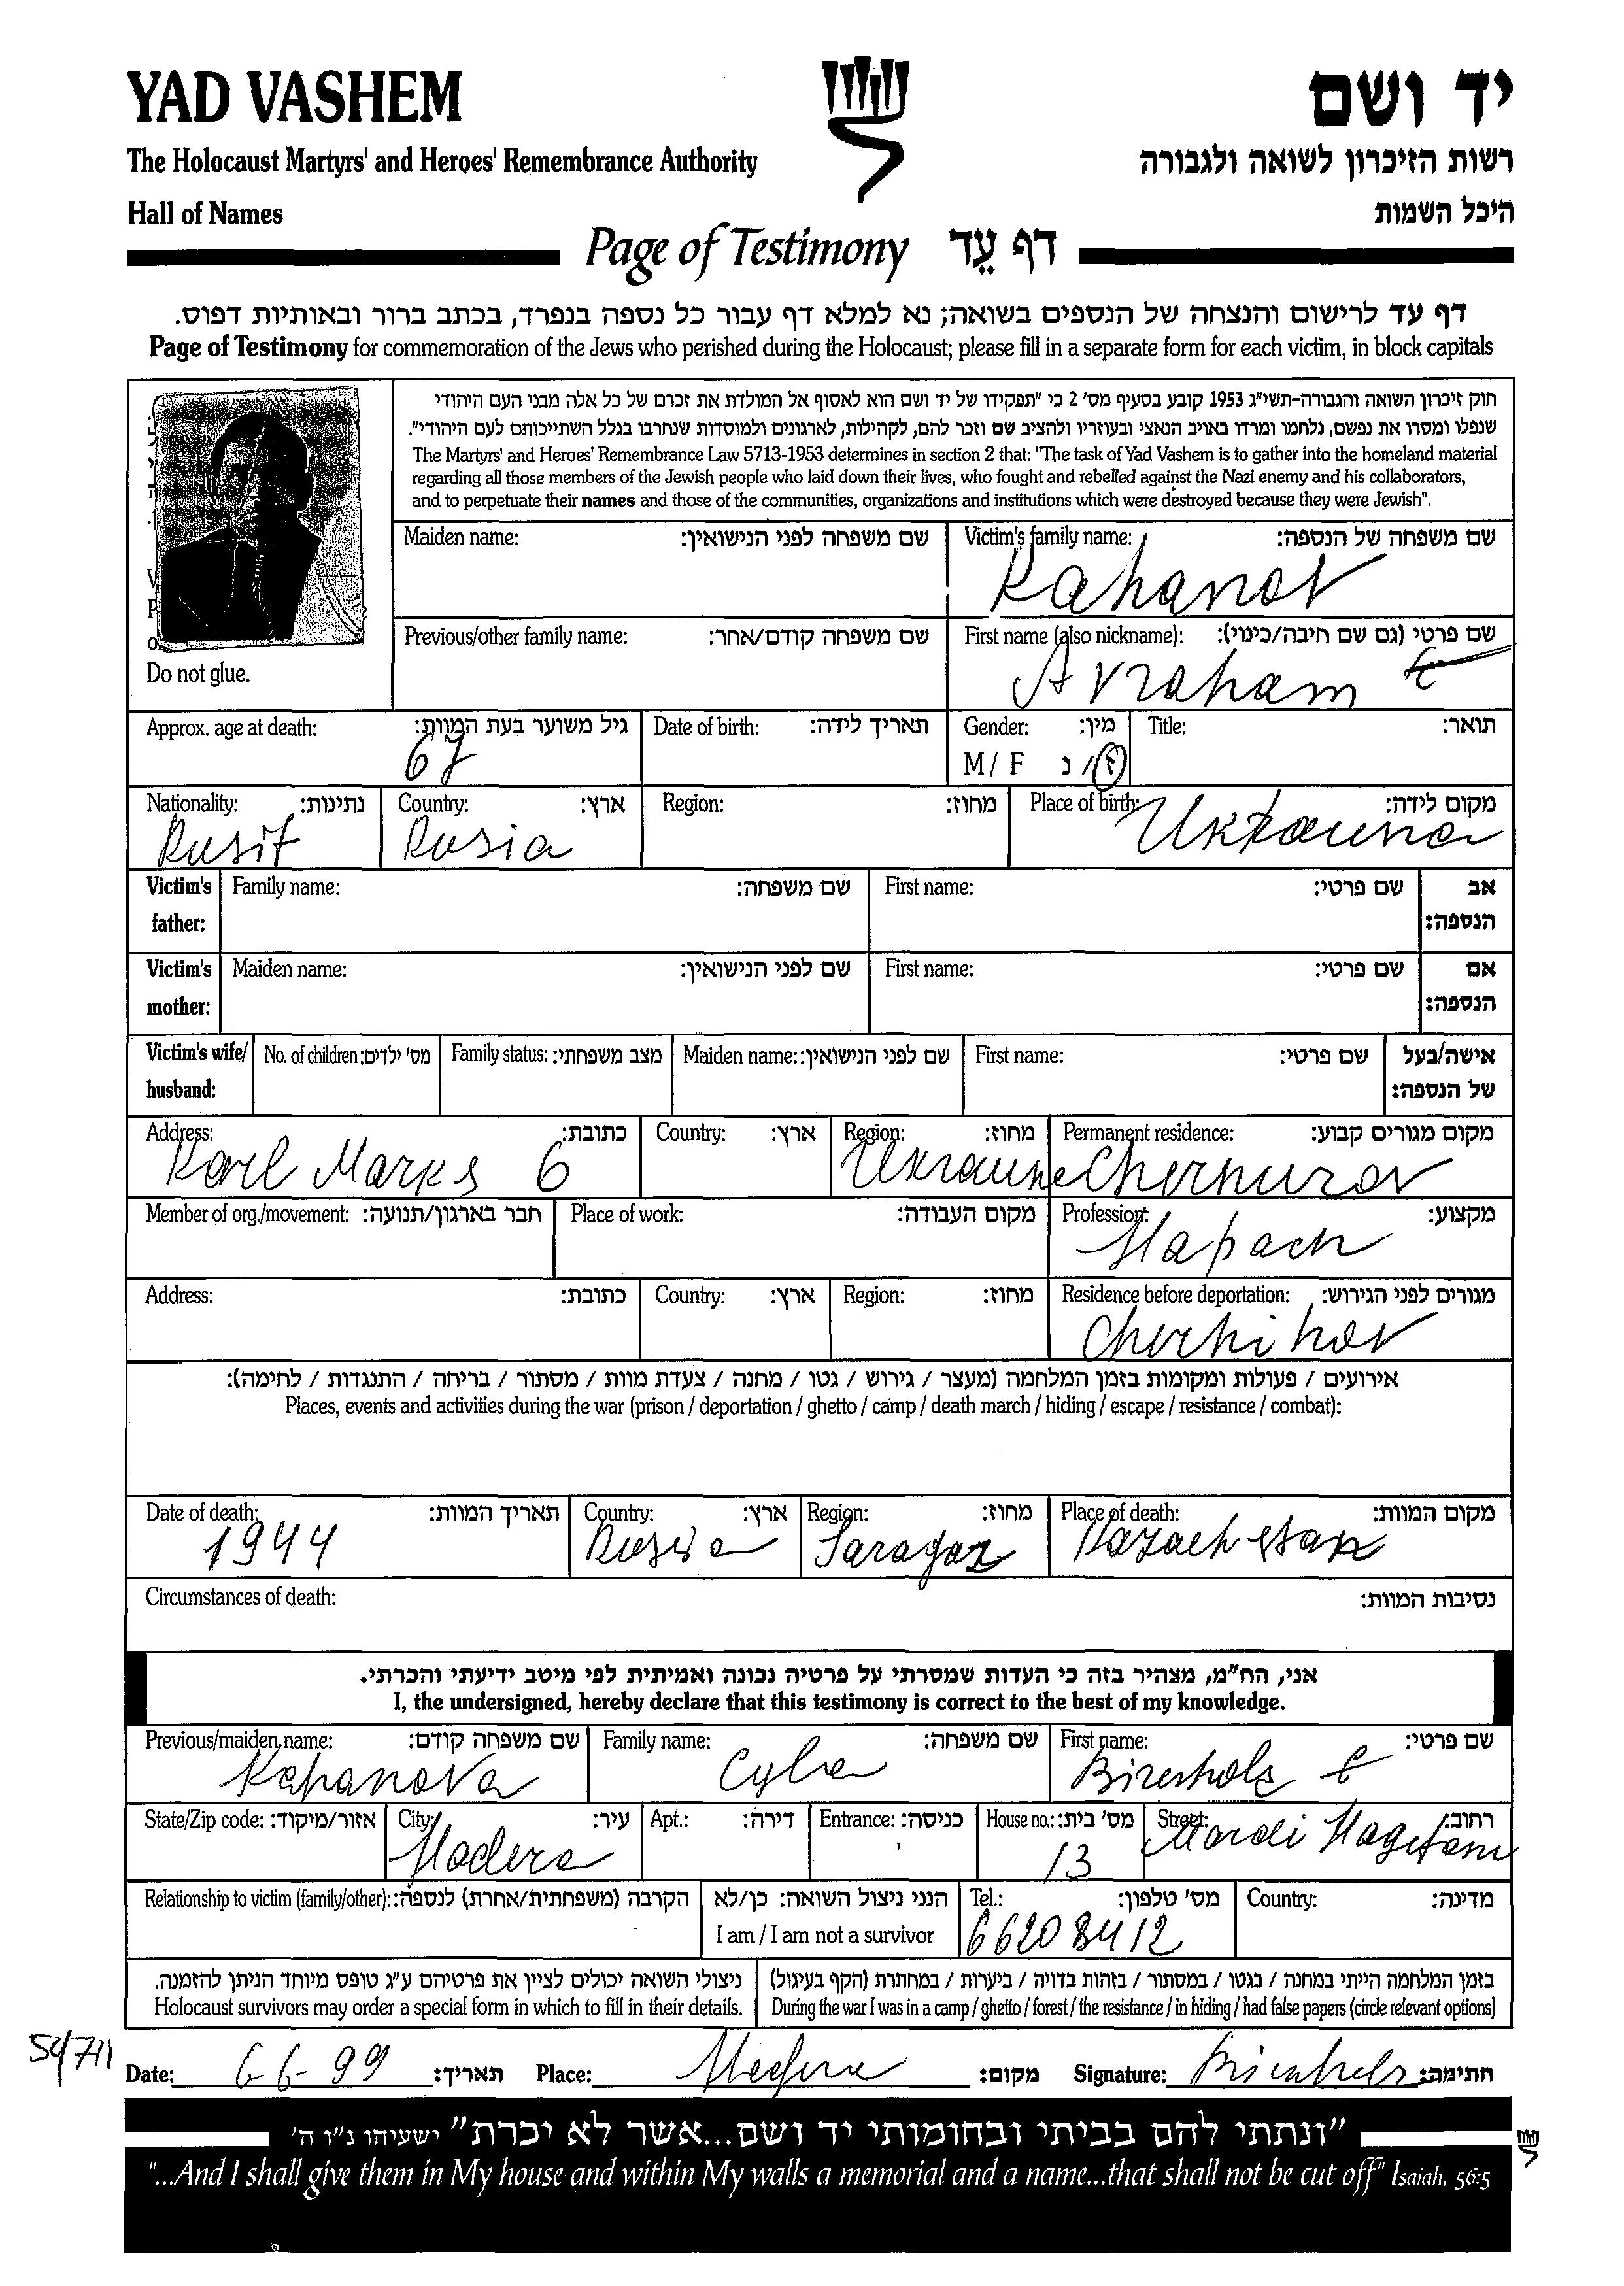 YAD VASHEM
יד ושם
The Holocaust Martyrs' and Heroes' Remembrance Authority
רשות הזיכרון לשואה ולגבורה
Hall of Names
היכל השמות
Page of Testimony דף עֵד
דף עד לרישום והנצחה של הנספים בשואה; נא למלא דף עבור כל נספה בנפרד, בכתב ברור ובאותיות דפוס.
Page of Testimony for commemoration of the Jews who perished during the Holocaust; please fill in a separate form for each victim, in block capitals
חוק זיכרון השואה והגבורה-תשי"ג 1953 קובע בסעיף מס' 2 כי "תפקידו של יד ושם הוא לאסוף אל המולדת את זכרם של כל אלה מבני העם היהודי
שנפלו ומסרו את נפשם, נלחמו ומרדו באויב הנאצי ובעוזריו ולהציב שם וזכר להם, לקהילות, לארגונים ולמוסדות שנחרבו בגלל השתייכותם לעם היהודי".
The Martyrs' and Heroes' Remembrance Law 5713-1953 determines in section 2 that: "The task of Yad Vashem is to gather into the homeland material
regarding all those members of the Jewish people who laid down their lives, who fought and rebelled against the Nazi enemy and his collaborators,
and to perpetuate their names and those of the communities, organizations and institutions which were destroyed because they were Jewish".
Do not glue.
Maiden name: שם משפחה לפני הנישואין:
Victim's family name: שם משפחה של הנספה:
Kahanov
Previous/other family name: שם משפחה קודם/אחר:
First name (also nickname): שם פרטי (גם שם חיבה/כינוי):
Avraham
Approx. age at death: גיל משוער בעת המוות:
67
Date of birth: תאריך לידה:
Gender: מין:
M / F ז / נ
Title: תואר:
Nationality: נתינות:
Rusit
Country: ארץ:
Rusia
Region: מחוז:
Place of birth: מקום לידה:
Ukrauna
Victim's father: Family name: שם משפחה: First name: שם פרטי: אב הנספה:
Victim's mother: Maiden name: שם לפני הנישואין: First name: שם פרטי: אם הנספה:
Victim's wife/ husband: No. of children: מס' ילדים: Family status: מצב משפחתי: Maiden name: שם לפני הנישואין: First name: שם פרטי: אישה/בעל של הנספה:
Address: כתובת:
Karl Marks 6
Country: ארץ:
Region: מחוז:
Ukraune
Permanent residence: מקום מגורים קבוע:
Member of org./movement: חבר בארגון/תנועה:
Place of work: מקום העבודה:
Profession: מקצוע:
Address: כתובת: Country: ארץ: Region: מחוז:
Residence before deportation: מגורים לפני הגירוש:
Cherhihov
אירועים / פעולות ומקומות בזמן המלחמה (מעצר / גירוש / גטו / מחנה / צעדת מוות / מסתור / בריחה / התנגדות / לחימה):
Places, events and activities during the war (prison / deportation / ghetto / camp / death march / hiding / escape / resistance / combat):
Date of death: תאריך המוות:
1944
Country: ארץ:
Rusia
Region: מחוז:
Place of death: מקום המוות:
Kazachstan
Circumstances of death: נסיבות המוות:
אני, הח"מ, מצהיר בזה כי העדות שמסרתי על פרטיה נכונה ואמיתית לפי מיטב ידיעתי והכרתי.
I, the undersigned, hereby declare that this testimony is correct to the best of my knowledge.
Previous/maiden name: שם משפחה קודם:
Kahanova
Family name: שם משפחה:
Cylia
First name: שם פרטי:
State/Zip code: אזור/מיקוד:
City: עיר:
Hadera
Apt.: דירה: Entrance: כניסה:
House no.: מס' בית:
13
Street: רחוב:
Mordi Hagetaot
Relationship to victim (family/other): הקרבה (משפחתית/אחרת) לנספה:
הנני ניצול השואה: כן/לא
I am / I am not a survivor
Tel.: מס' טלפון:
66208412
Country: מדינה:
ניצולי השואה יכולים לציין את פרטיהם ע"ג טופס מיוחד הניתן להזמנה.
Holocaust survivors may order a special form in which to fill in their details.
בזמן המלחמה הייתי במחנה / בגטו / במסתור / בזהות בדויה / ביערות / במחתרת (הקף בעיגול)
During the war I was in a camp / ghetto / forest / the resistance / in hiding / had false papers (circle relevant options)
54/711
Date: 6-6-99 תאריך: Place: מקום: Signature: חתימה:
"ונתתי להם בביתי ובחומותי יד ושם...אשר לא יכרת" ישעיהו נ"ו ה'
"...And I shall give them in My house and within My walls a memorial and a name...that shall not be cut off" Isaiah, 56:5